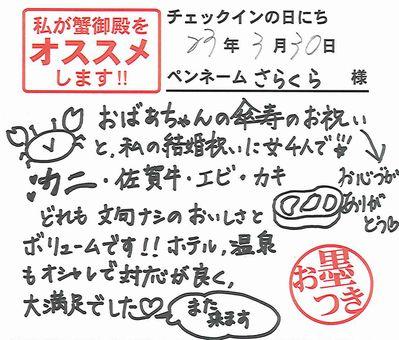 私が蟹御殿を
オススメ
します!!
チェックインの日にち
23年3月30日
ペンネーム さらくら 様
おばあちゃんの傘寿のお祝い
と、私の結婚祝いに女4人で
カニ・佐賀牛・エビ・カキ
お心づかい
ありが
とう
どれも文句ナシのおいしさと
ボリュームです!!ホテル,温泉
もオシャレで対応が良く,
大満足でした♡
また
来ます
お墨
つき